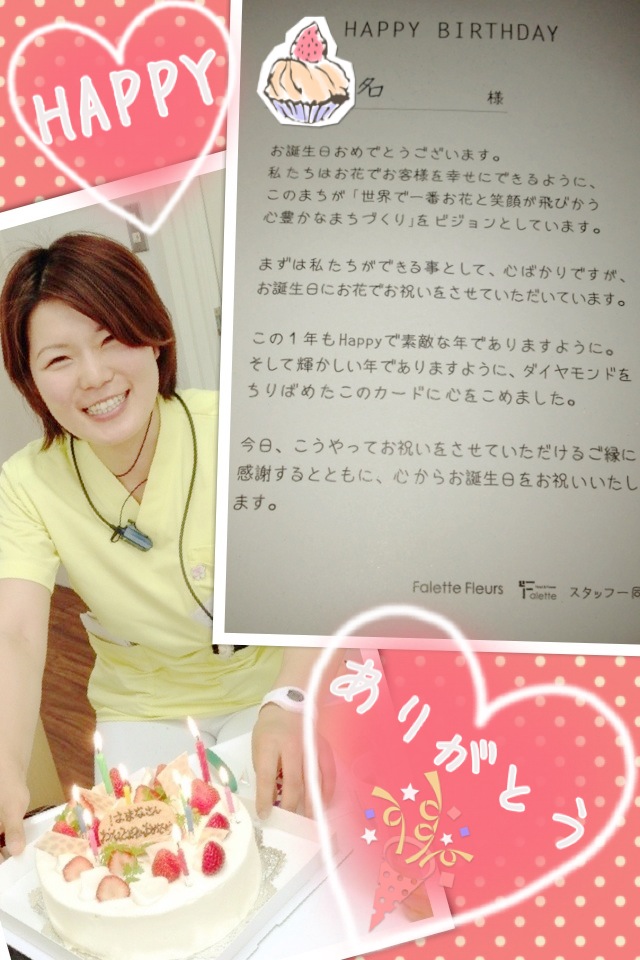 HAPPY
HAPPY BIRTHDAY
名 様
お誕生日おめでとうございます。
私たちはお花でお客様を幸せにできるように、
このまちが「世界で一番お花と笑顔が飛びかう
心豊かなまちづくり」をビジョンとしています。
まずは私たちができる事として、心ばかりですが、
お誕生日にお花でお祝いをさせていただいています。
この1年もHappyで素敵な年でありますように。
そして輝かしい年でありますように、ダイヤモンドを
ちりばめたこのカードに心をこめました。
今日、こうやってお祝いをさせていただけるご縁に
感謝するとともに、心からお誕生日をお祝いいたし
ます。
Falette Fleurs Falette スタッフ一同
ありがとう
はまなさん